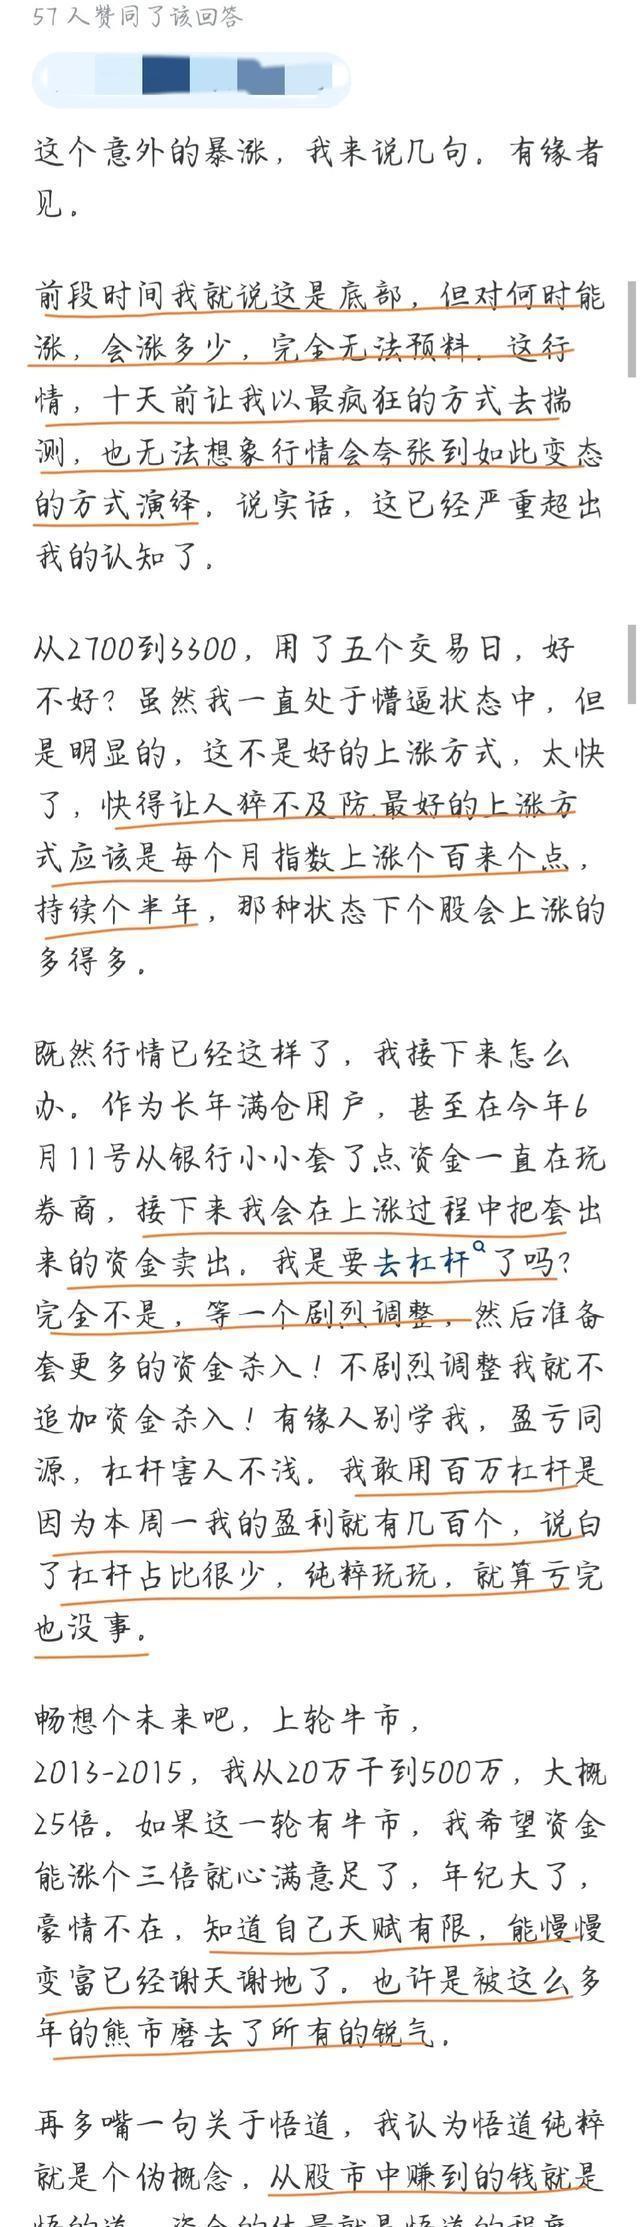 57人赞同了该回答
这个意外的暴涨，我来说几句。有缘者
见。
前段时间我就说这是底部，但对何时能
涨，会涨多少，完全无法预料。这行
情，十天前让我以最疯狂的方式去揣
测，也无法想象行情会夸张到如此变态
的方式演绎，说实话，这已经严重超出
我的认知了。
从2700到3300，用了五个交易日，好
不好？虽然我一直处于懵逼状态中，但
是明显的，这不是好的上涨方式，太快
了，快得让人猝不及防.最好的上涨方
式应该是每个月指数上涨个百来个点，
持续个半年，那种状态下个股会上涨的
多得多。
既然行情已经这样了，我接下来怎么
办。作为长年满仓用户，甚至在今年6
月11号从银行小小套了点资金一直在玩
券商，接下来我会在上涨过程中把套出
来的资金卖出。我是要去杠杆了吗？
完全不是，等一个剧烈调整，然后准备
套更多的资金杀入！不剧烈调整我就不
追加资金杀入！有缘人别学我，盈亏同
源，杠杆害人不浅。我敢用百万杠杆是
因为本周一我的盈利就有几百个，说白
了杠杆占比很少，纯粹玩玩，就算亏完
也没事。
畅想个未来吧，上轮牛市，
2013-2015，我从20万干到500万，大概
25倍。如果这一轮有牛市，我希望资金
能涨个三倍就心满意足了，年纪大了，
豪情不在，知道自己天赋有限，能慢慢
变富已经谢天谢地了。也许是被这么多
年的熊市磨去了所有的锐气。
再多嘴一句关于悟道，我认为悟道纯粹
就是个伪概念，从股市中赚到的钱就是
悟的道，资金的体量就是悟道的程度